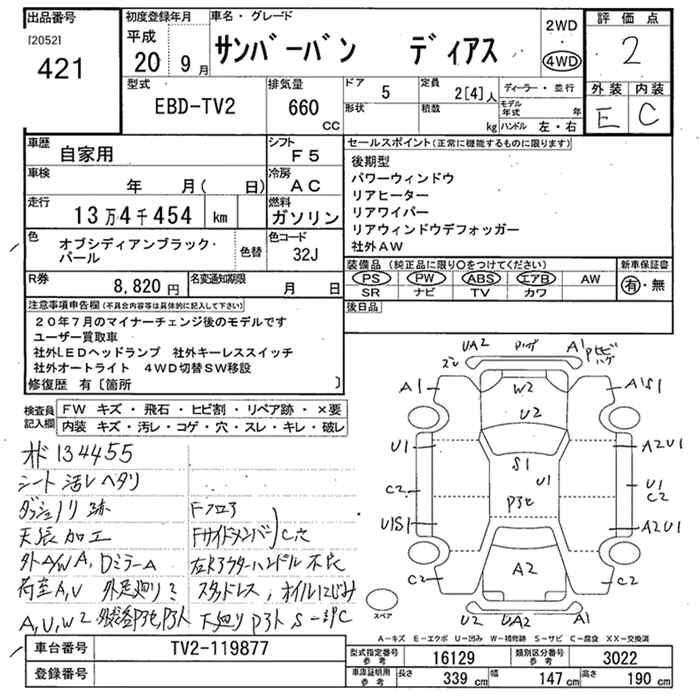 出品番号
[2052]
421
初度登録年月
平成
20 9 月
車名・グレード
サンバーバン ディアス
2WD
4WD
評価点
2
型式
EBD-TV2
排気量
660
CC
ドア
5
形状
定員
2[4] 人
積数
kg
ディーラー・並行
モデル年式 年
ハンドル 左・右
外装 内装
E C
車歴
自家用
シフト
F5
車検
年 月( 日)
冷房
AC
走行
13万4千454 km
燃料
ガソリン
色
オブシディアンブラック・
パール
色替
色コード
32J
R券
8,820 円
名変通知期限
月 日
セールスポイント(正常に機能するものに限ります)
後期型
パワーウィンドウ
リアヒーター
リアワイパー
リアウィンドウデフォッガー
社外AW
装備品 (純正品に限り○をつけてください)
PS PW ABS エアB AW
SR ナビ TV カワ
新車保証書
有・無
後日品
注意事項申告欄(不具合内容等は具体的に記入して下さい)
20年7月のマイナーチェンジ後のモデルです
ユーザー買取車
社外LEDヘッドランプ 社外キーレススイッチ
社外オートライト 4WD切替SW移設
修復歴 有〔箇所 〕
検査員
記入欄
FW キズ・飛石・ヒビ割・リペア跡・×要
内装 キズ・汚レ・コゲ・穴・スレ・キレ・破レ
134455
シート 汚レ ヘタリ
ダッシュノリ跡
天張加工
外A/W A, DミラーA
荷室A,U
A,U,W2
Fフロア
Fサイドメンバー
C穴
スタッドレス, オイルにじみ
下廻り
S一部C
UA2
A1
A1
W2
U2
A1S1
U1
S1
U1
A2U1
C2
U1
C2
U1S1
A2U1
C2
A2
C2
U2
UA2
A1
スペア
A-キズ E-エクボ U-凹み W-補修跡 S-サビ C-腐食 XX-交換済
車台番号
TV2-119877
登録番号
型式指定番号
参考
16129
類別区分番号
参考
3022
車庫証明用
参考
長さ
339 cm
幅
147 cm
高さ
190 cm